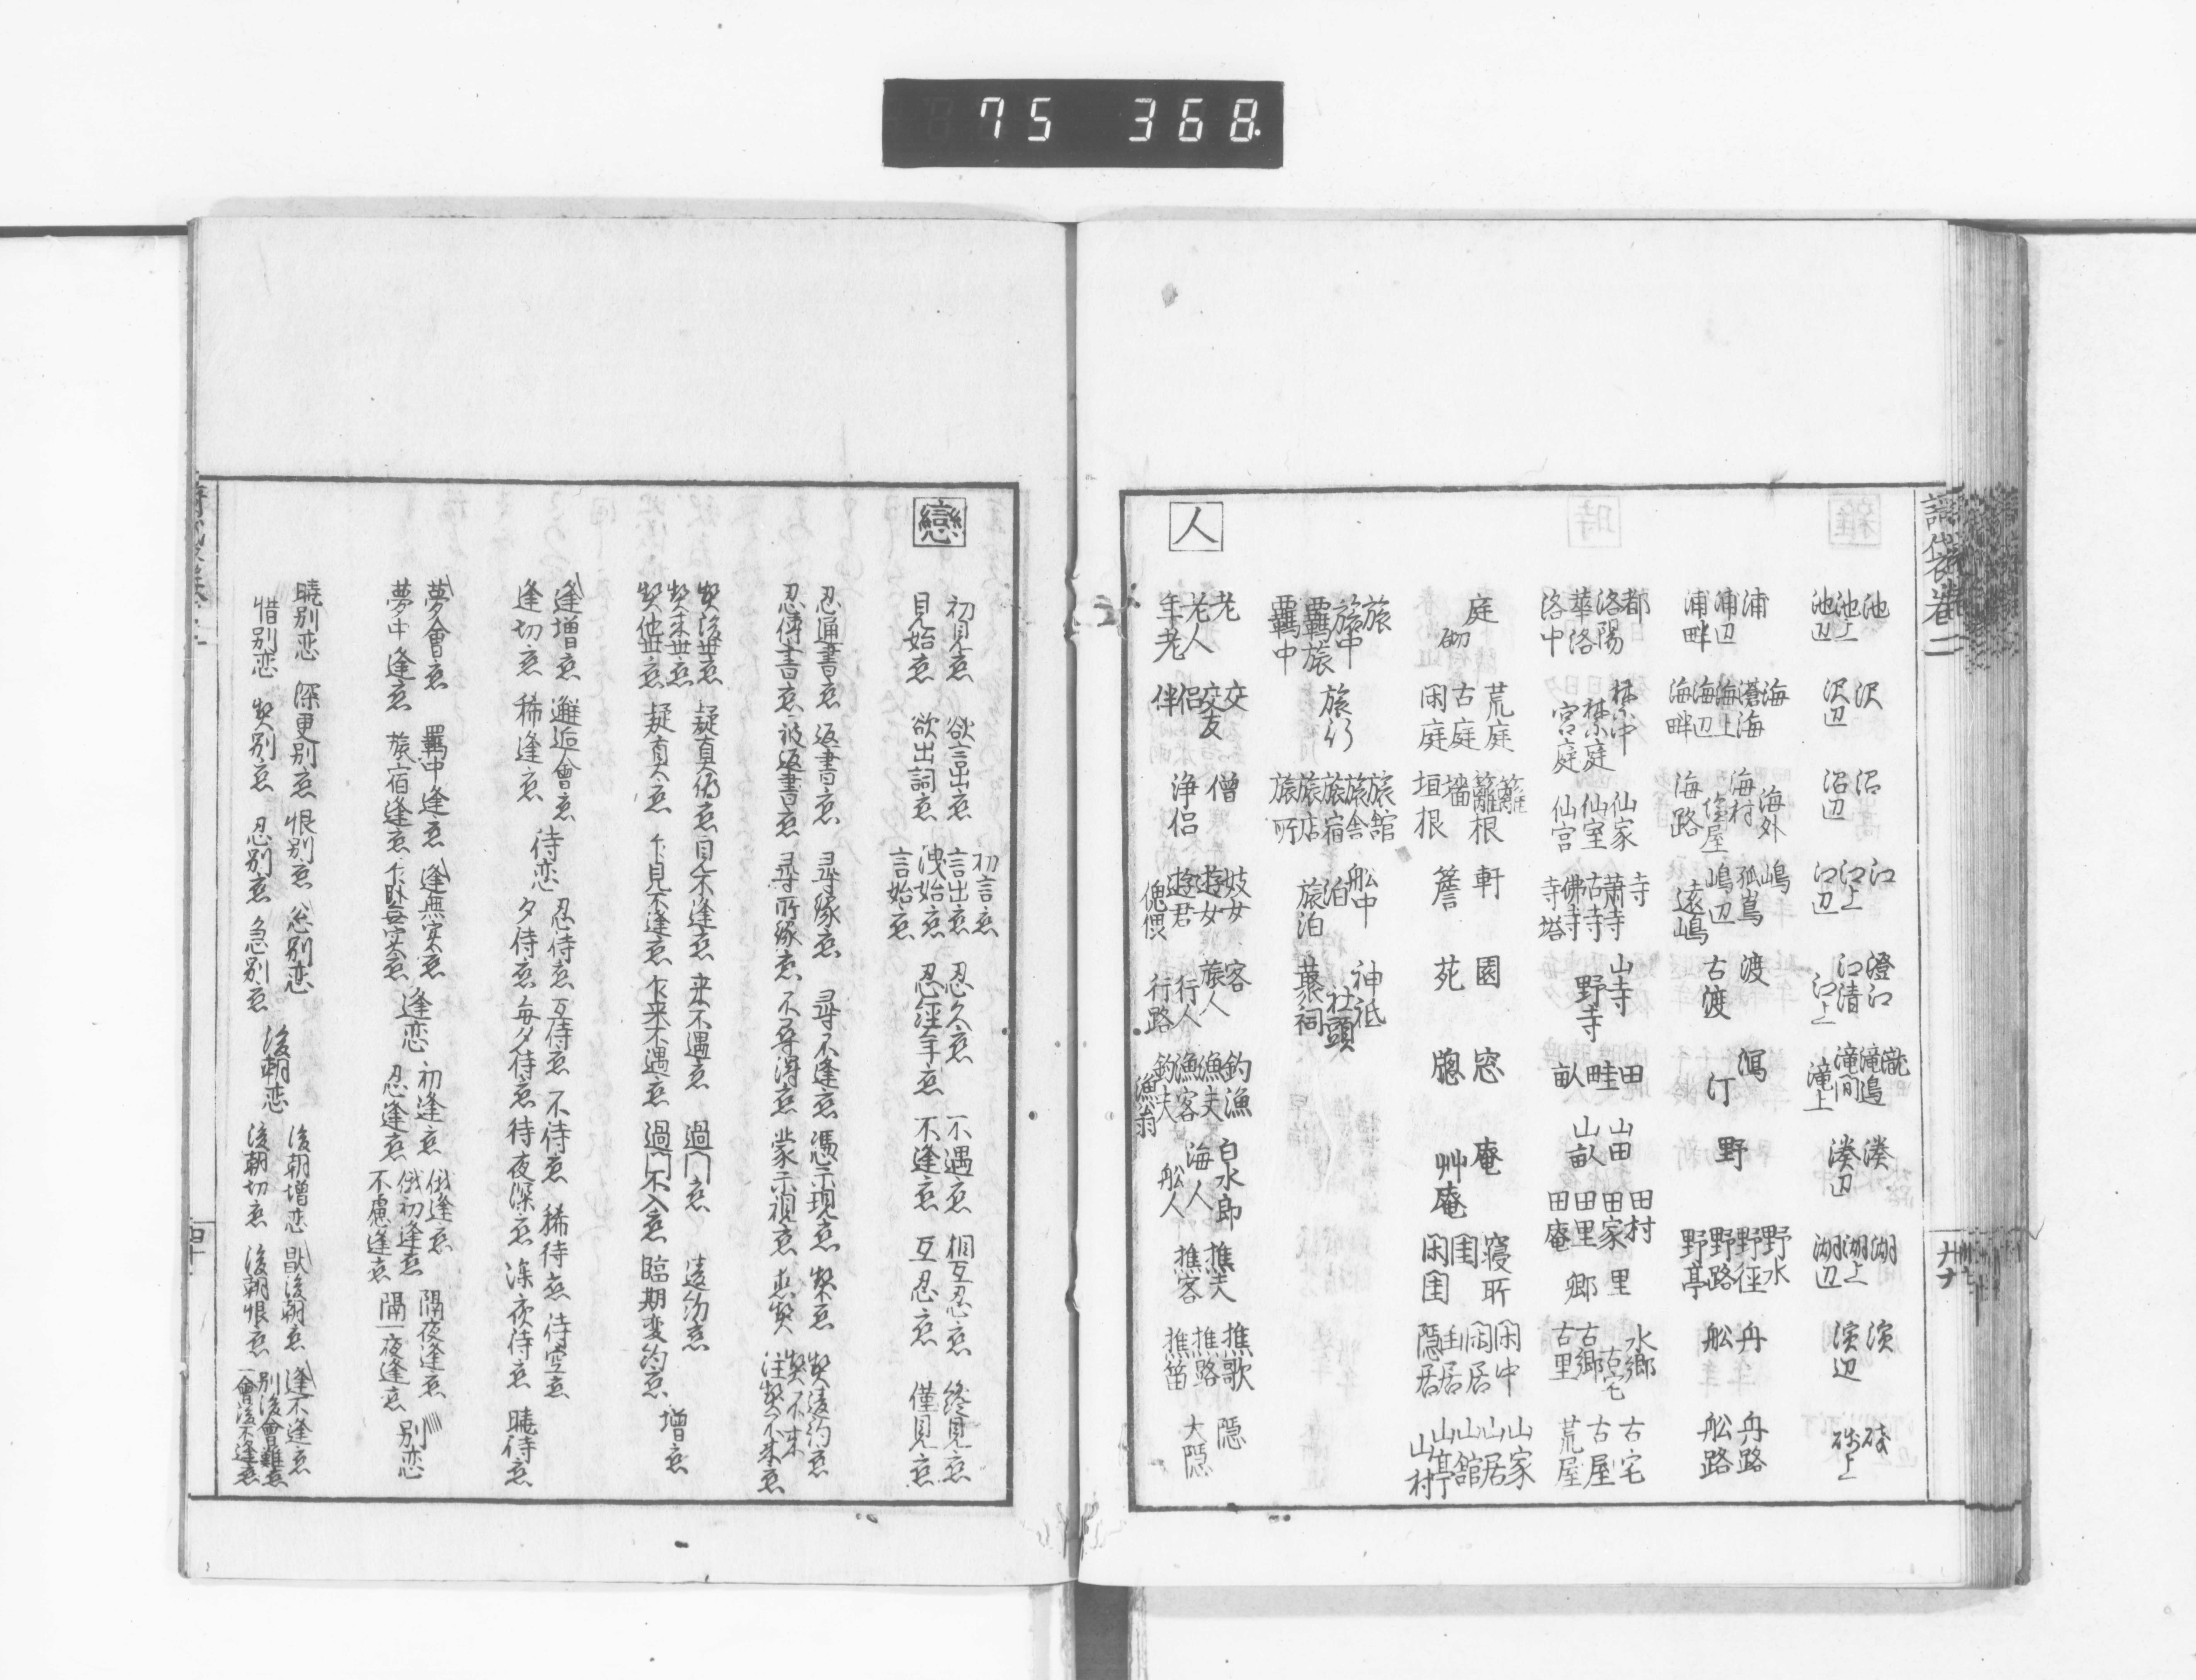 75 368
池 池上 池辺
沢 沢辺
沼 沼辺
江 江上 江辺
澄江 江清 江上
瀧 滝邉 滝間 滝上
湊 湊辺
湖 湖上 湖辺
濱 濱辺
砂上
浦 浦辺 浦畔
海 滄海 海上 海辺 海畔
海外 海村 塩屋 海路
嶋 孤嶌 嶋辺 遠嶋
渡 古渡
潟 汀
野
野水 野径 野路 野亭
舟 舩
舟路 舩路
都 洛陽 華洛 洛中
禁中 禁庭 宮庭
仙家 仙室 仙宮
寺 蕭寺 古寺 佛寺 寺塔
山寺 野寺
田 畦 畝
山田 山畝
田村 田家 田里 田庵
里 郷
水郷 古宅 古郷 古里
古宅 古屋 荒屋
庭 砌
荒庭 古庭 閑庭
籬 籬根 墻 垣根
軒 簷
園 苑
窓 牕
庵 艸庵
寝所 閨 閑閨
閑中 閑居 幽居 隠居
山家 山居 山舘 山亭 山村
旅 旅中 羇旅 羇中
旅行
旅舘 旅舎 旅宿 旅店 旅所
舩中 泊 旅泊
神祇 社頭 叢祠
人
老 老人 年老
交 交友 侶 伴
僧 浄侶
妓女 遊女 遊君 傀儡
客 旅人 行人 行路
釣漁 漁夫 漁客 釣夫 漁翁
白水郎 海人 舩人
樵夫 樵客
樵歌 樵路 樵笛
隠 大隠
戀
初見恋 見始恋
欲言出恋 欲出詞恋
初言恋 言出恋 洩始恋 言始恋
忍久恋 忍経年恋
不遇恋 不逢恋
相互忍恋 互忍恋
終見恋 僅見恋
忍通書恋 忍傳書恋
返書恋 被返書恋
尋縁恋 尋所縁恋
尋不逢恋 不尋得恋
憑示現恋 蒙示現恋
契恋
契後世恋 契来世恋 契他世恋
疑真偽恋 疑真恋
見不逢恋 乍見不逢恋
来不遇恋 乍来不遇恋
過門恋 過門不入恋
違約恋 臨期変約恋
増恋
逢増恋 逢切恋
邂逅會恋 稀逢恋
待恋
忍待恋 夕待恋
互待恋 毎夕待恋
不待恋 待夜深恋
稀待恋 深夜待恋
待空恋 暁待恋
夢會恋 夢中逢恋
羇中逢恋 旅宿逢恋
逢無実恋 乍臥無実恋
逢恋
初逢恋 忍逢恋
俄逢恋 俄初逢恋 不慮逢恋
隔夜逢恋 隔一夜逢恋
別恋
暁別恋 惜別恋
深更別恋 契別恋
恨別恋 忍別恋
忩別恋 急別恋
後朝恋
後朝増恋 後朝切恋
後朝恋 後朝恨恋
逢不逢恋 別後會難恋 一會後不逢恋